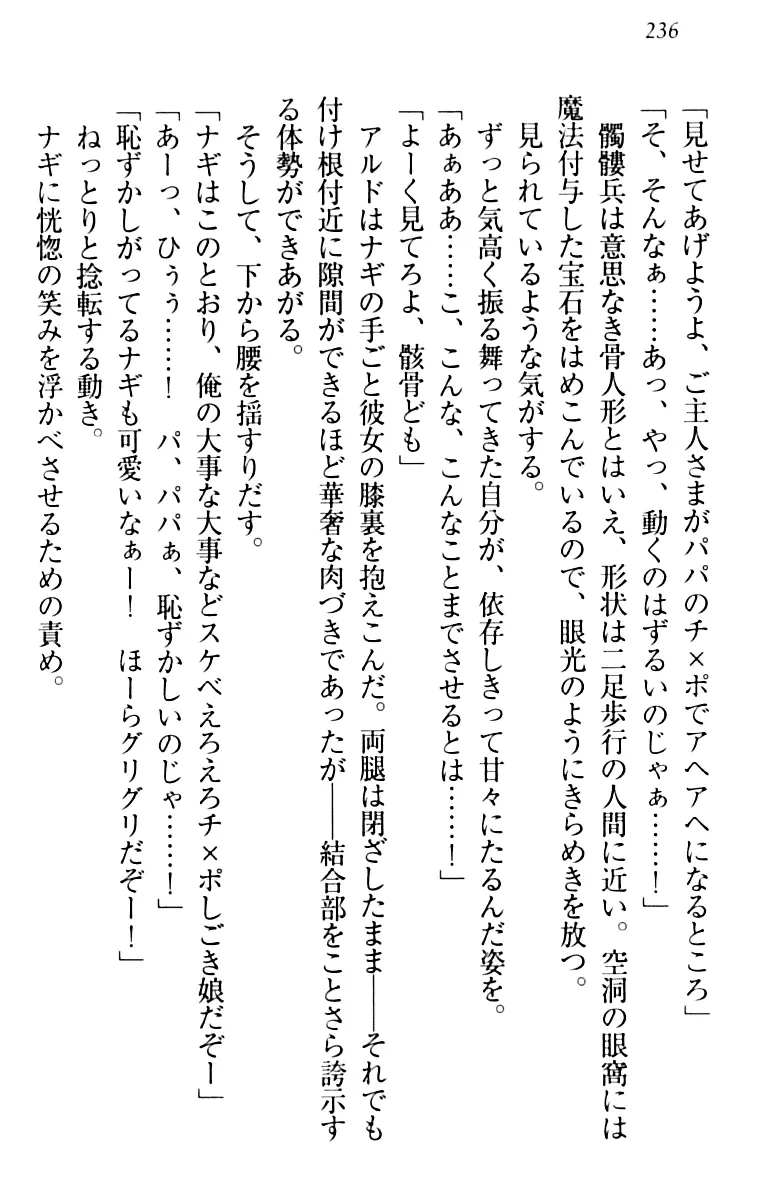 236
「見せてあげようよ、ご主人さまがパパのチ×ポでアヘアヘになるところ」
「そ、そんなぁ……あっ、やっ、動くのはずるいのじゃぁ……！」
髑髏兵は意思なき骨人形とはいえ、形状は二足歩行の人間に近い。空洞の眼窩には
魔法付与した宝石をはめこんでいるので、眼光のようにきらめきを放つ。
見られているような気がする。
ずっと気高く振る舞ってきた自分が、依存しきって甘々にたるんだ姿を。
「あぁああ……こ、こんな、こんなことまでさせるとは……！」
「よーく見てろよ、骸骨ども」
アルドはナギの手ごと彼女の膝裏を抱えこんだ。両腿は閉ざしたまま――それでも
付け根付近に隙間ができるほど華奢な肉づきであったが――結合部をことさら誇示す
る体勢ができあがる。
そうして、下から腰を揺すりだす。
「ナギはこのとおり、俺の大事な大事などスケベえろえろチ×ポしごき娘だぞー」
「あーっ、ひぅぅ……！　パ、パパぁ、恥ずかしいのじゃ……！」
「恥ずかしがってるナギも可愛いなぁー！　ほーらグリグリだぞー！」
ねっとりと捻転する動き。
ナギに恍惚の笑みを浮かべさせるための責め。